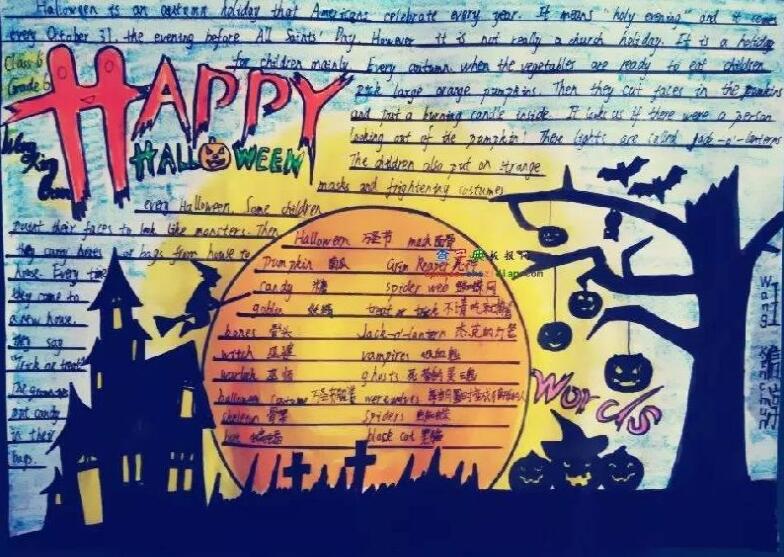 Halloween is an autumn holiday that Americans celebrate every year. It means "holy evening" and it comes
every October 31. the evening before All Saints' Day However it is not really a church holiday. It is a holiday
for children mainly Every autumn when the vegetables are ready to eat children
pick large orange pumpkins. Then they cut faces in the pumpkins
and put a burning candle inside. It looks as if there were a person
looking out of the pumpkin! These lights are called Jack-o'-lanterns
The children also put on strange
masks and frightening costumes
every Halloween. Some children
paint their faces to look like monsters. Then
they carry boxes or bags from house to
house. Every time
they come to
a new house.
they say
Trick or treat!
put candy
in their
bags.
Class 6
Grade 6
HAPPY
HALLOWEEN
Halloween 万圣节 mask 面具
pumpkin 南瓜 Grim Reaper 死神
candy 糖 spider web 蜘蛛网
goblin 妖精 treat or trick 不请吃就捣蛋
bones 骨头 Jack-o'-lantern 杰克的灯笼
witch 巫婆 vampires 吸血鬼
warlock 巫师 ghosts
halloween costume werewolves
skeleton 骨架 spiders 蜘蛛
bat 蝙蝠 black cat 黑猫
Words